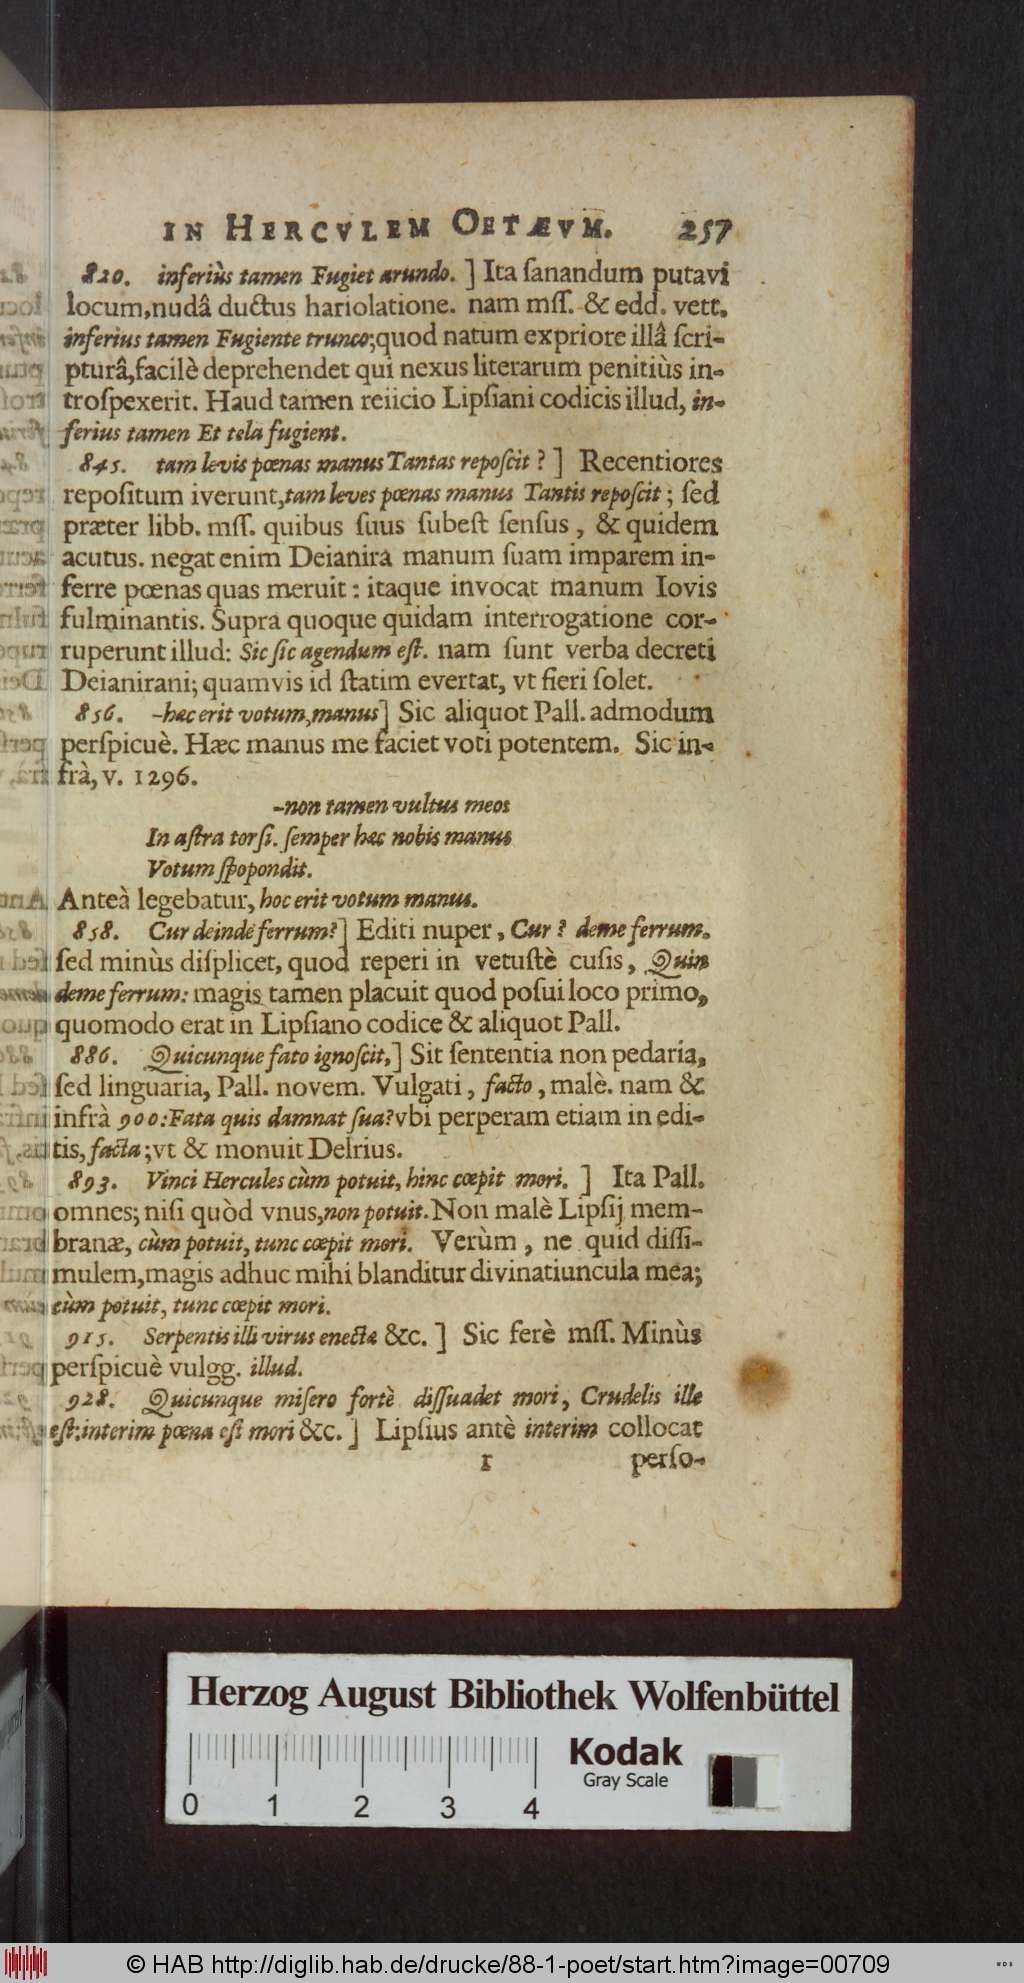 IN HERCVLEM OETÆVM. 257
820. inferiùs tamen Fugiet arundo. ] Ita ſanandum putavi
locum, nudâ ductus hariolatione. nam mſſ. & edd. vett.
inferius tamen Fugiente trunco; quod natum expriore illâ ſcri-
pturâ, facilè deprehendet qui nexus literarum penitiùs in-
troſpexerit. Haud tamen reiicio Lipſiani codicis illud, in-
ferius tamen Et tela fugient.
845. tam levis pœnas manus Tantas repoſcit? ] Recentiores
repoſitum iverunt, tam leves pœnas manus Tantis repoſcit; ſed
præter libb. mſſ. quibus ſuus ſubeſt ſenſus, & quidem
acutus. negat enim Deianira manum ſuam imparem in-
ferre pœnas quas meruit: itaque invocat manum Iovis
fulminantis. Supra quoque quidam interrogatione cor-
ruperunt illud: Sic ſic agendum eſt. nam ſunt verba decreti
Deianirani; quamvis id ſtatim evertat, vt fieri ſolet.
856. -hæc erit votum, manus] Sic aliquot Pall. admodum
perſpicuè. Hæc manus me faciet voti potentem. Sic in-
frà, v. 1296.
-non tamen vultus meos
In aſtra torſi. ſemper hæc nobis manus
Votum ſpopondit.
Anteà legebatur, hoc erit votum manus.
858. Cur deinde ferrum?] Editi nuper, Cur? deme ferrum.
ſed minùs diſplicet, quod reperi in vetuſtè cuſis, Quin
deme ferrum: magis tamen placuit quod poſui loco primo,
quomodo erat in Lipſiano codice & aliquot Pall.
886. Quicunque fato ignoſcit,] Sit ſententia non pedaria,
ſed linguaria, Pall. novem. Vulgati, facto, malè. nam &
infrà 900: Fata quis damnat ſua? vbi perperam etiam in edi-
tis, facta; vt & monuit Delrius.
893. Vinci Hercules cùm potuit, hinc cœpit mori. ] Ita Pall.
omnes; niſi quòd vnus, non potuit. Non malè Lipſij mem-
branæ, cùm potuit, tunc cœpit mori. Verùm, ne quid diſſi-
mulem, magis adhuc mihi blanditur divinatiuncula mea;
cùm potuit, tunc cœpit mori.
915. Serpentis illi virus enectæ &c. ] Sic ferè mſſ. Minùs
perſpicuè vulgg. illud.
928. Quicunque miſero fortè diſſuadet mori, Crudelis ille
eſt: interim pœna eſt mori &c. ] Lipſius antè interim collocat
r perſo-
Herzog August Bibliothek Wolfenbüttel
Kodak
Gray Scale
0 1 2 3 4
© HAB http://diglib.hab.de/drucke/88-1-poet/start.htm?image=00709